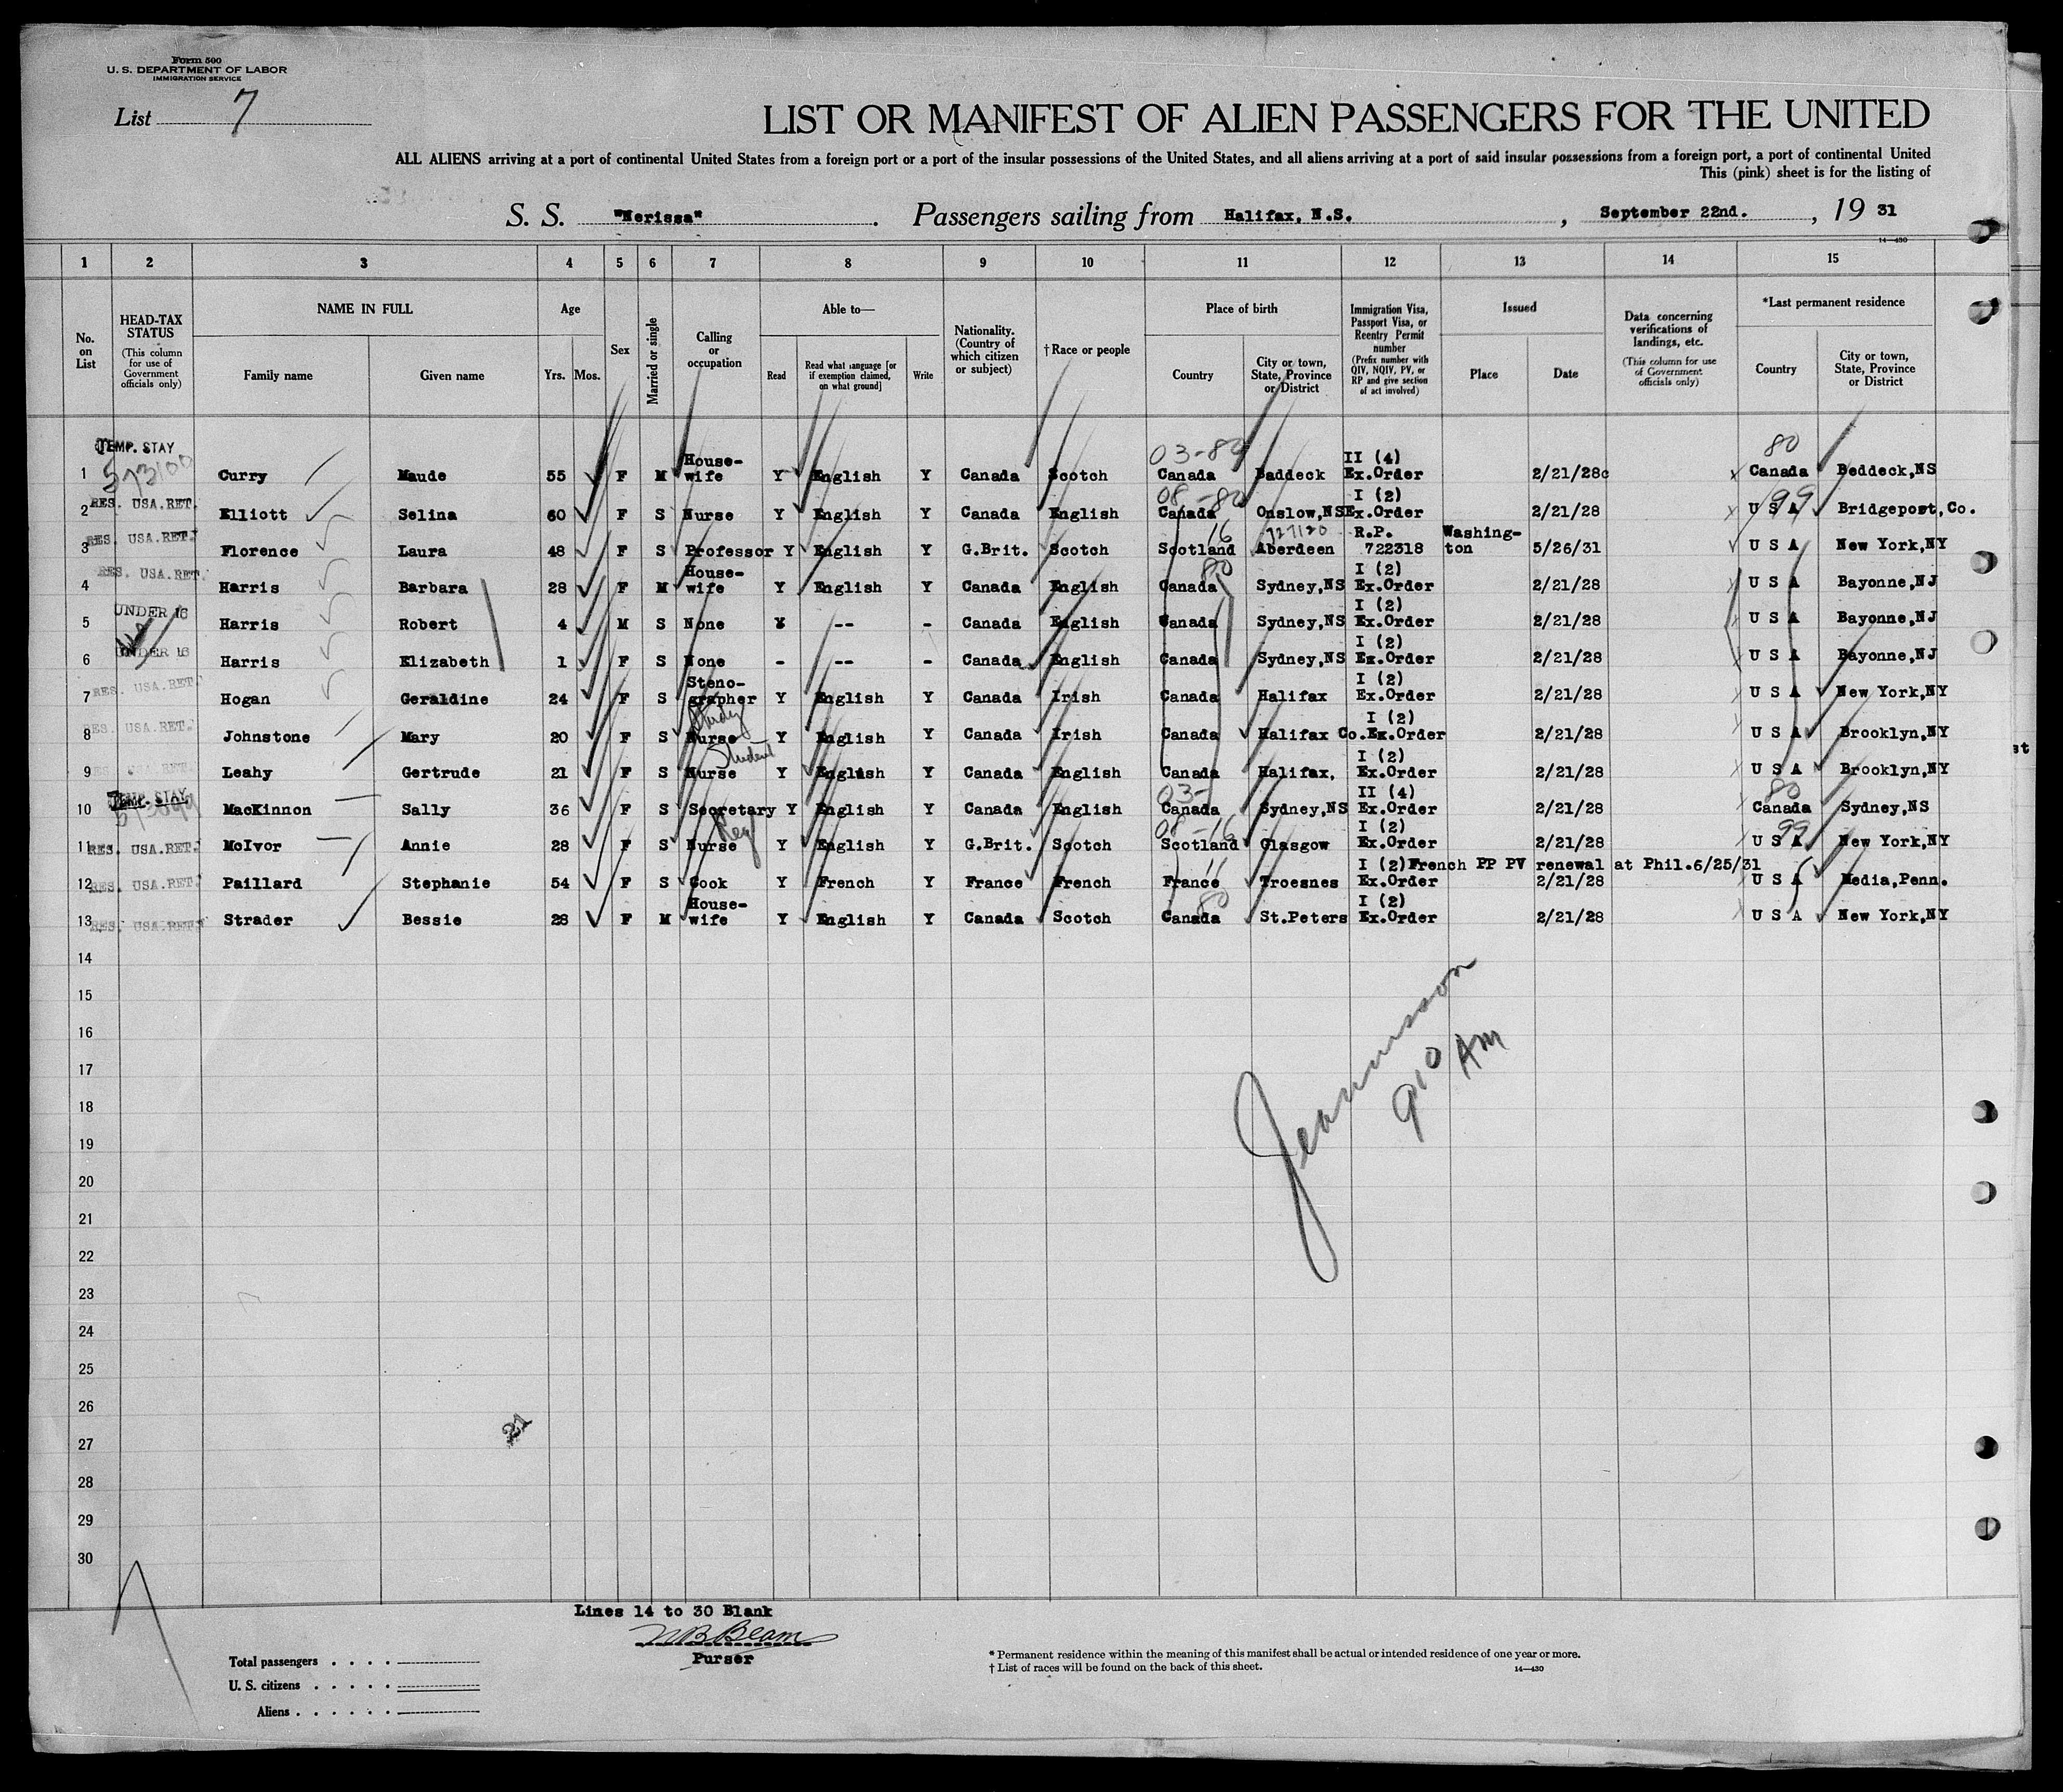 Form 500
U. S. DEPARTMENT OF LABOR
IMMIGRATION SERVICE
List 7
LIST OR MANIFEST OF ALIEN PASSENGERS FOR THE UNITED
ALL ALIENS arriving at a port of continental United States from a foreign port or a port of the insular possessions of the United States, and all aliens arriving at a port of said insular possessions from a foreign port, a port of continental United
This (pink) sheet is for the listing of
S. S. "Nerissa". Passengers sailing from Halifax, N.S., September 22nd., 19 31
14—430
1 2 3 4 5 6 7 8 9 10 11 12 13 14 15
No. on List
HEAD-TAX STATUS (This column for use of Government officials only)
NAME IN FULL
Family name Given name
Age
Yrs. Mos.
Sex
Married or single
Calling or occupation
Able to—
Read
Read what language [or if exemption claimed, on what ground]
Write
Nationality. (Country of which citizen or subject)
† Race or people
Place of birth
Country
City or town, State, Province or District
Immigration Visa, Passport Visa, or Reentry Permit number (Prefix number with QIV, NQIV, PV, or RP and give section of act involved)
Issued
Place Date
Data concerning verifications of landings, etc. (This column for use of Government officials only)
*Last permanent residence
Country
City or town, State, Province or District
TEMP. STAY 03-80 80
1 573100 Curry Maude 55 F M House-wife Y English Y Canada Scotch Canada Baddeck II (4) Ex.Order 2/21/28c Canada Beddeck,NS
08-80 99
2 RES. USA.RET. Elliott Selina 60 F S Nurse Y English Y Canada English Canada Onslow,NS I (2) Ex.Order 2/21/28 U S A Bridgepost,Co.
16 727120
3 RES. USA.RET. Florence Laura 48 F S Professor Y English Y G.Brit. Scotch Scotland Aberdeen R.P. 722318 Washing-ton 5/26/31 U S A New York,NY
80
4 RES. USA.RET. Harris Barbara 28 F M House-wife Y English Y Canada English Canada Sydney,NS I (2) Ex.Order 2/21/28 U S A Bayonne,NJ
5 UNDER 16 Harris Robert 4 M S None -- - Canada English Canada Sydney,NS I (2) Ex.Order 2/21/28 U S A Bayonne,NJ
6 UNDER 16 Harris Elizabeth 1 F S None - -- - Canada English Canada Sydney,NS I (2) Ex.Order 2/21/28 U S A Bayonne,NJ
7 RES. USA.RET. Hogan Geraldine 24 F S Steno-grapher Y English Y Canada Irish Canada Halifax I (2) Ex.Order 2/21/28 U S A New York,NY
8 RES. USA.RET. Johnstone Mary 20 F S Nurse Y English Y Canada Irish Canada Halifax Co. I (2) Ex.Order 2/21/28 U S A Brooklyn,NY
Student
9 RES. USA.RET. Leahy Gertrude 21 F S Nurse Y English Y Canada English Canada Halifax, I (2) Ex.Order 2/21/28 U S A Brooklyn,NY
TEMP. STAY 03- 80
10 MacKinnon Sally 36 F S Secretary Y English Y Canada English Canada Sydney,NS II (4) Ex.Order 2/21/28 Canada Sydney,NS
Reg 08-16 99
11 RES. USA.RET. McIvor Annie 28 F S Nurse Y English Y G.Brit. Scotch Scotland Glasgow I (2) Ex.Order 2/21/28 U S A New York,NY
I (2) French PP PV renewal at Phil.6/25/31
12 RES. USA.RET. Paillard Stephanie 54 F S Cook Y French Y France French France Troesnes Ex.Order 2/21/28 U S A Media,Penn.
80
13 RES. USA.RET. Strader Bessie 28 F M House-wife Y English Y Canada Scotch Canada St.Peters I (2) Ex.Order 2/21/28 U S A New York,NY
14
15
16
17
18
19
20
21
22
23
24
25
26
27
28
29
30
910 AM
21
Lines 14 to 30 Blank
Purser
Total passengers . . . .
U. S. citizens . . . . .
Aliens . . . . . .
* Permanent residence within the meaning of this manifest shall be actual or intended residence of one year or more.
† List of races will be found on the back of this sheet.
14—430